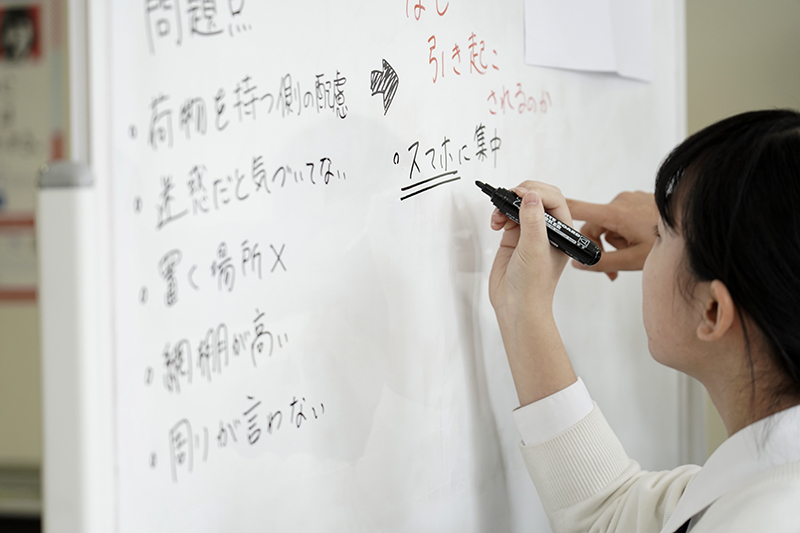 問題点
・荷物を持つ側の配慮
・迷惑だと気づいてない.
・置く場所×
・網棚が高い
・周りが言わない
なぜ
引き起こ
されるのか
○スマホに集中